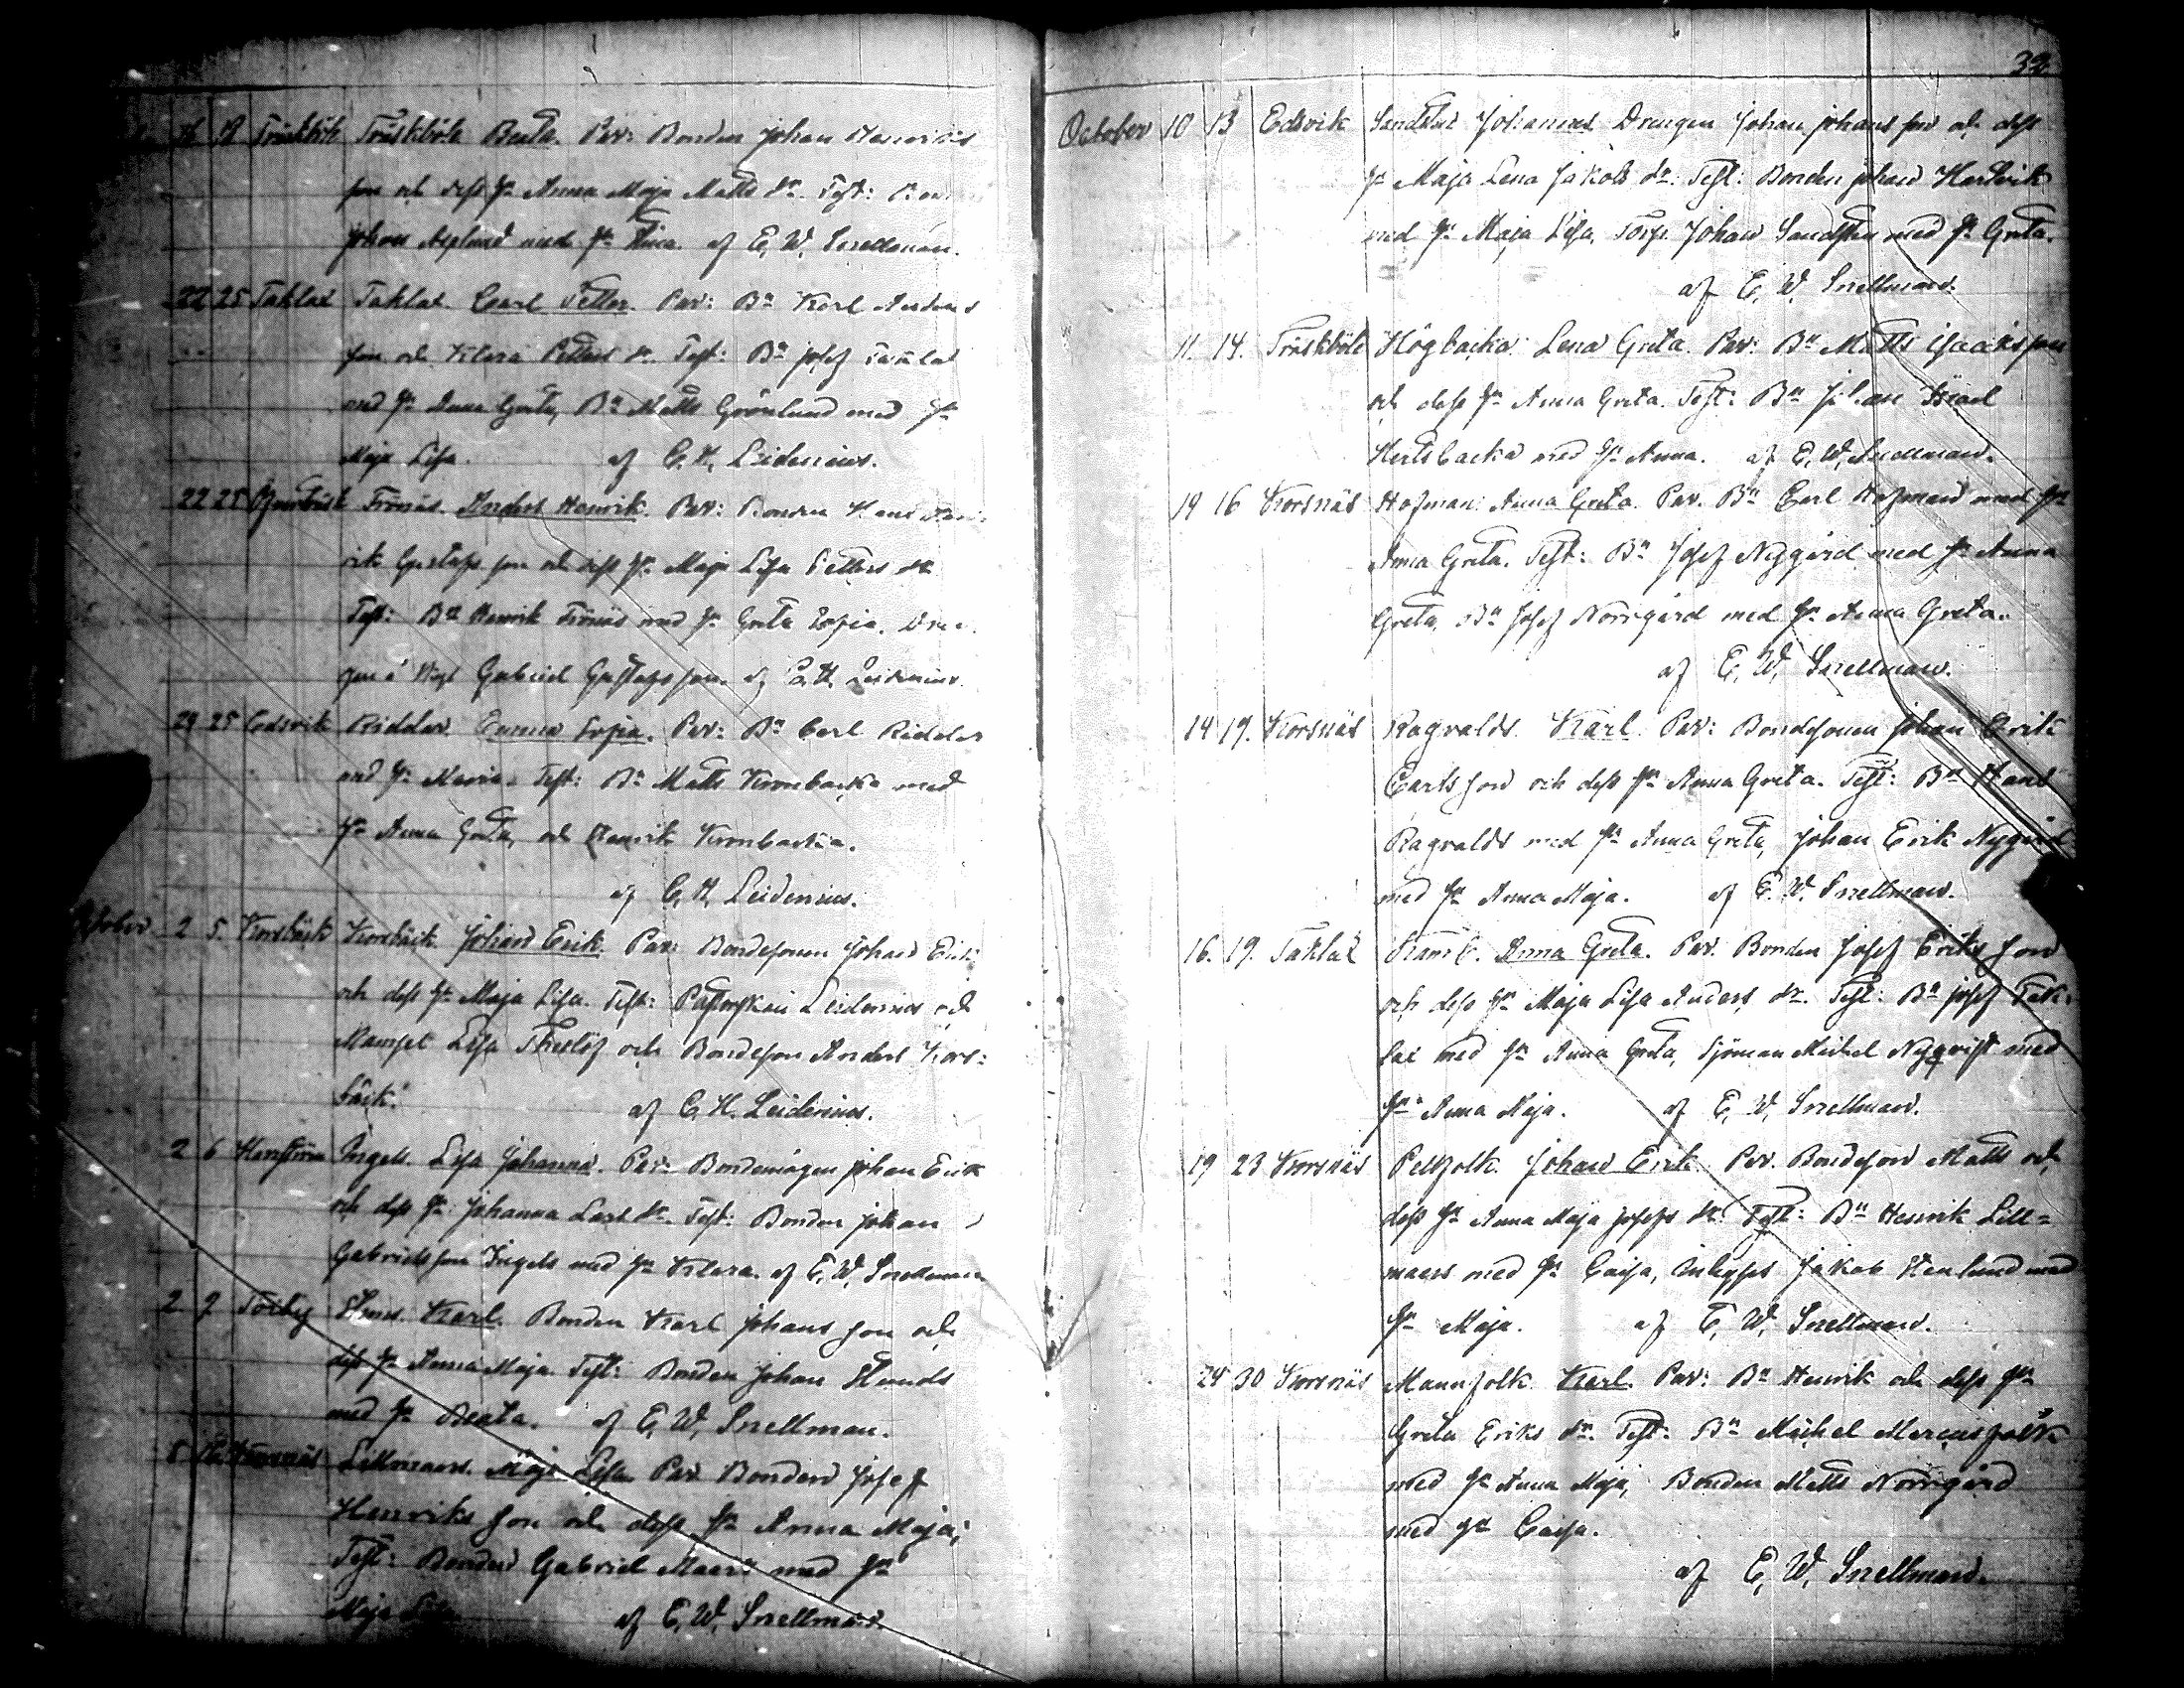 16 19 Träskböle Träskböle Beata. Par: Bonden Johan Henriks
son och dess h:u Anna Maja Matts dr. Test: Bon
Johan Asplund med h:u Stina af E. W. Snellman.
22 25 Taklax Taklax. Carl Petter. Par: Bn Karl Anders
son och Klara Petters dr. Test: Bn Josef Taklax
med hu Anna Greta, Bn Matts Grönlund med hu
Maja Lisa. af C. H. Leidenius.
22 25 Tränäs. Anders Henrik. Par: Bonden Hans Hen
rik Gustafs son och dess hu Maja Lisa Petters dr
Test: Bn Henrik Tränäs med hu Greta Sofia. Drän
gen Gabriel Gustafs son. af C. H. Leidenius.
24 25 Edsvik Riddar. Emma Sofia. Par: Bn Carl Riddar
med hu Maria. Test: Bn Matts Kronbacka med
hu Anna Greta, och Henrik Kronbacka.
af C. H. Leidenius.
October 2 5. Korsbäck Korsbäck. Johan Erik. Par: Bondesonen Johan Erik
och dess hu Maja Lisa. Test: Pastorskan Leidenius och
Mamsel Lisa och Bondeson Anders Kors=
bäck. af C. H. Leidenius.
2 6 Ingels. Lisa Johanna. Par: Bondemågen Johan Erik
och dess hu Johanna Carls dr. Test: Bonden Johan
Gabriels son Ingels med hu Klara. af E. W. Snellman
2 7 Töjby Karl. Bonden Karl Johans son och
dess hu Anna Maja. Test: Bonden Johan
med hu Beata. af E. W. Snellman.
8 Korsnäs Lillmans. Maja Lisa. Par Bonden Josef
Henriks son och dess hu Anna Maja;
Test: Bonden Gabriel Maers med hu
Maja Lisa af E. W. Snellman.
32
October 10 13 Edsvik Sandsten Johannes Drengen Johan Johans son och dess
hu Maja Lena Jakobs dr. Test: Bonden Johan
med hu Maja Lisa, Torp. Johan Sandsten med hu Greta.
af E. W. Snellman.
11. 14. Träskböle Högbacka: Lena Greta. Par: Bn Matts Isaaks son
och dess hu Anna Greta. Test: Bn Johan Israel
Hertsbacka med hu Anna. af E. W. Snellman.
14 16 Korsnäs Hofman: Anna Greta. Par. Bn Carl Hofman med hu
Anna Greta. Test: Bn Josef Nygård med hu Anna
Greta, Bn Josef Norrgård med hu Anna Greta.
af E. W. Snellman.
14 19. Korsnäs Ragvalds. Karl. Par: Bondesonen Johan Erik
Carls son och dess hu Anna Greta. Test: Bn Hans
Ragvalds med hu Anna Greta, Johan Erik Nygård
med hu Anna Maja. af E. W. Snellman.
16. 19. Taklax Anna Greta. Par. Bonden Josef Eriks son
och dess hu Maja Lisa Anders dr. Test: Bn Josef Tak=
lax med hu Anna Greta, Sjöman Michel Nyqvist med
hu Anna Maja. af E. W. Snellman.
19 23 Korsnäs Pellfolk. Johan Erik. Par. Bondeson Matts och
dess hu Anna Maja Josefs dr. Test: Bn Henrik Lill=
maers med hu Caisa, Inhyses Jakob Stenlund med
hu Maja. af E. W. Snellman.
24 30 Korsnäs Mannfolk. Karl. Par: Bn Henrik och dess hu
Greta Eriks dr. Test: Bn Michel Marcusfolk
med hu Anna Maja, Bonden Matts Norrgård
med hu Caisa.
af E. W. Snellman.